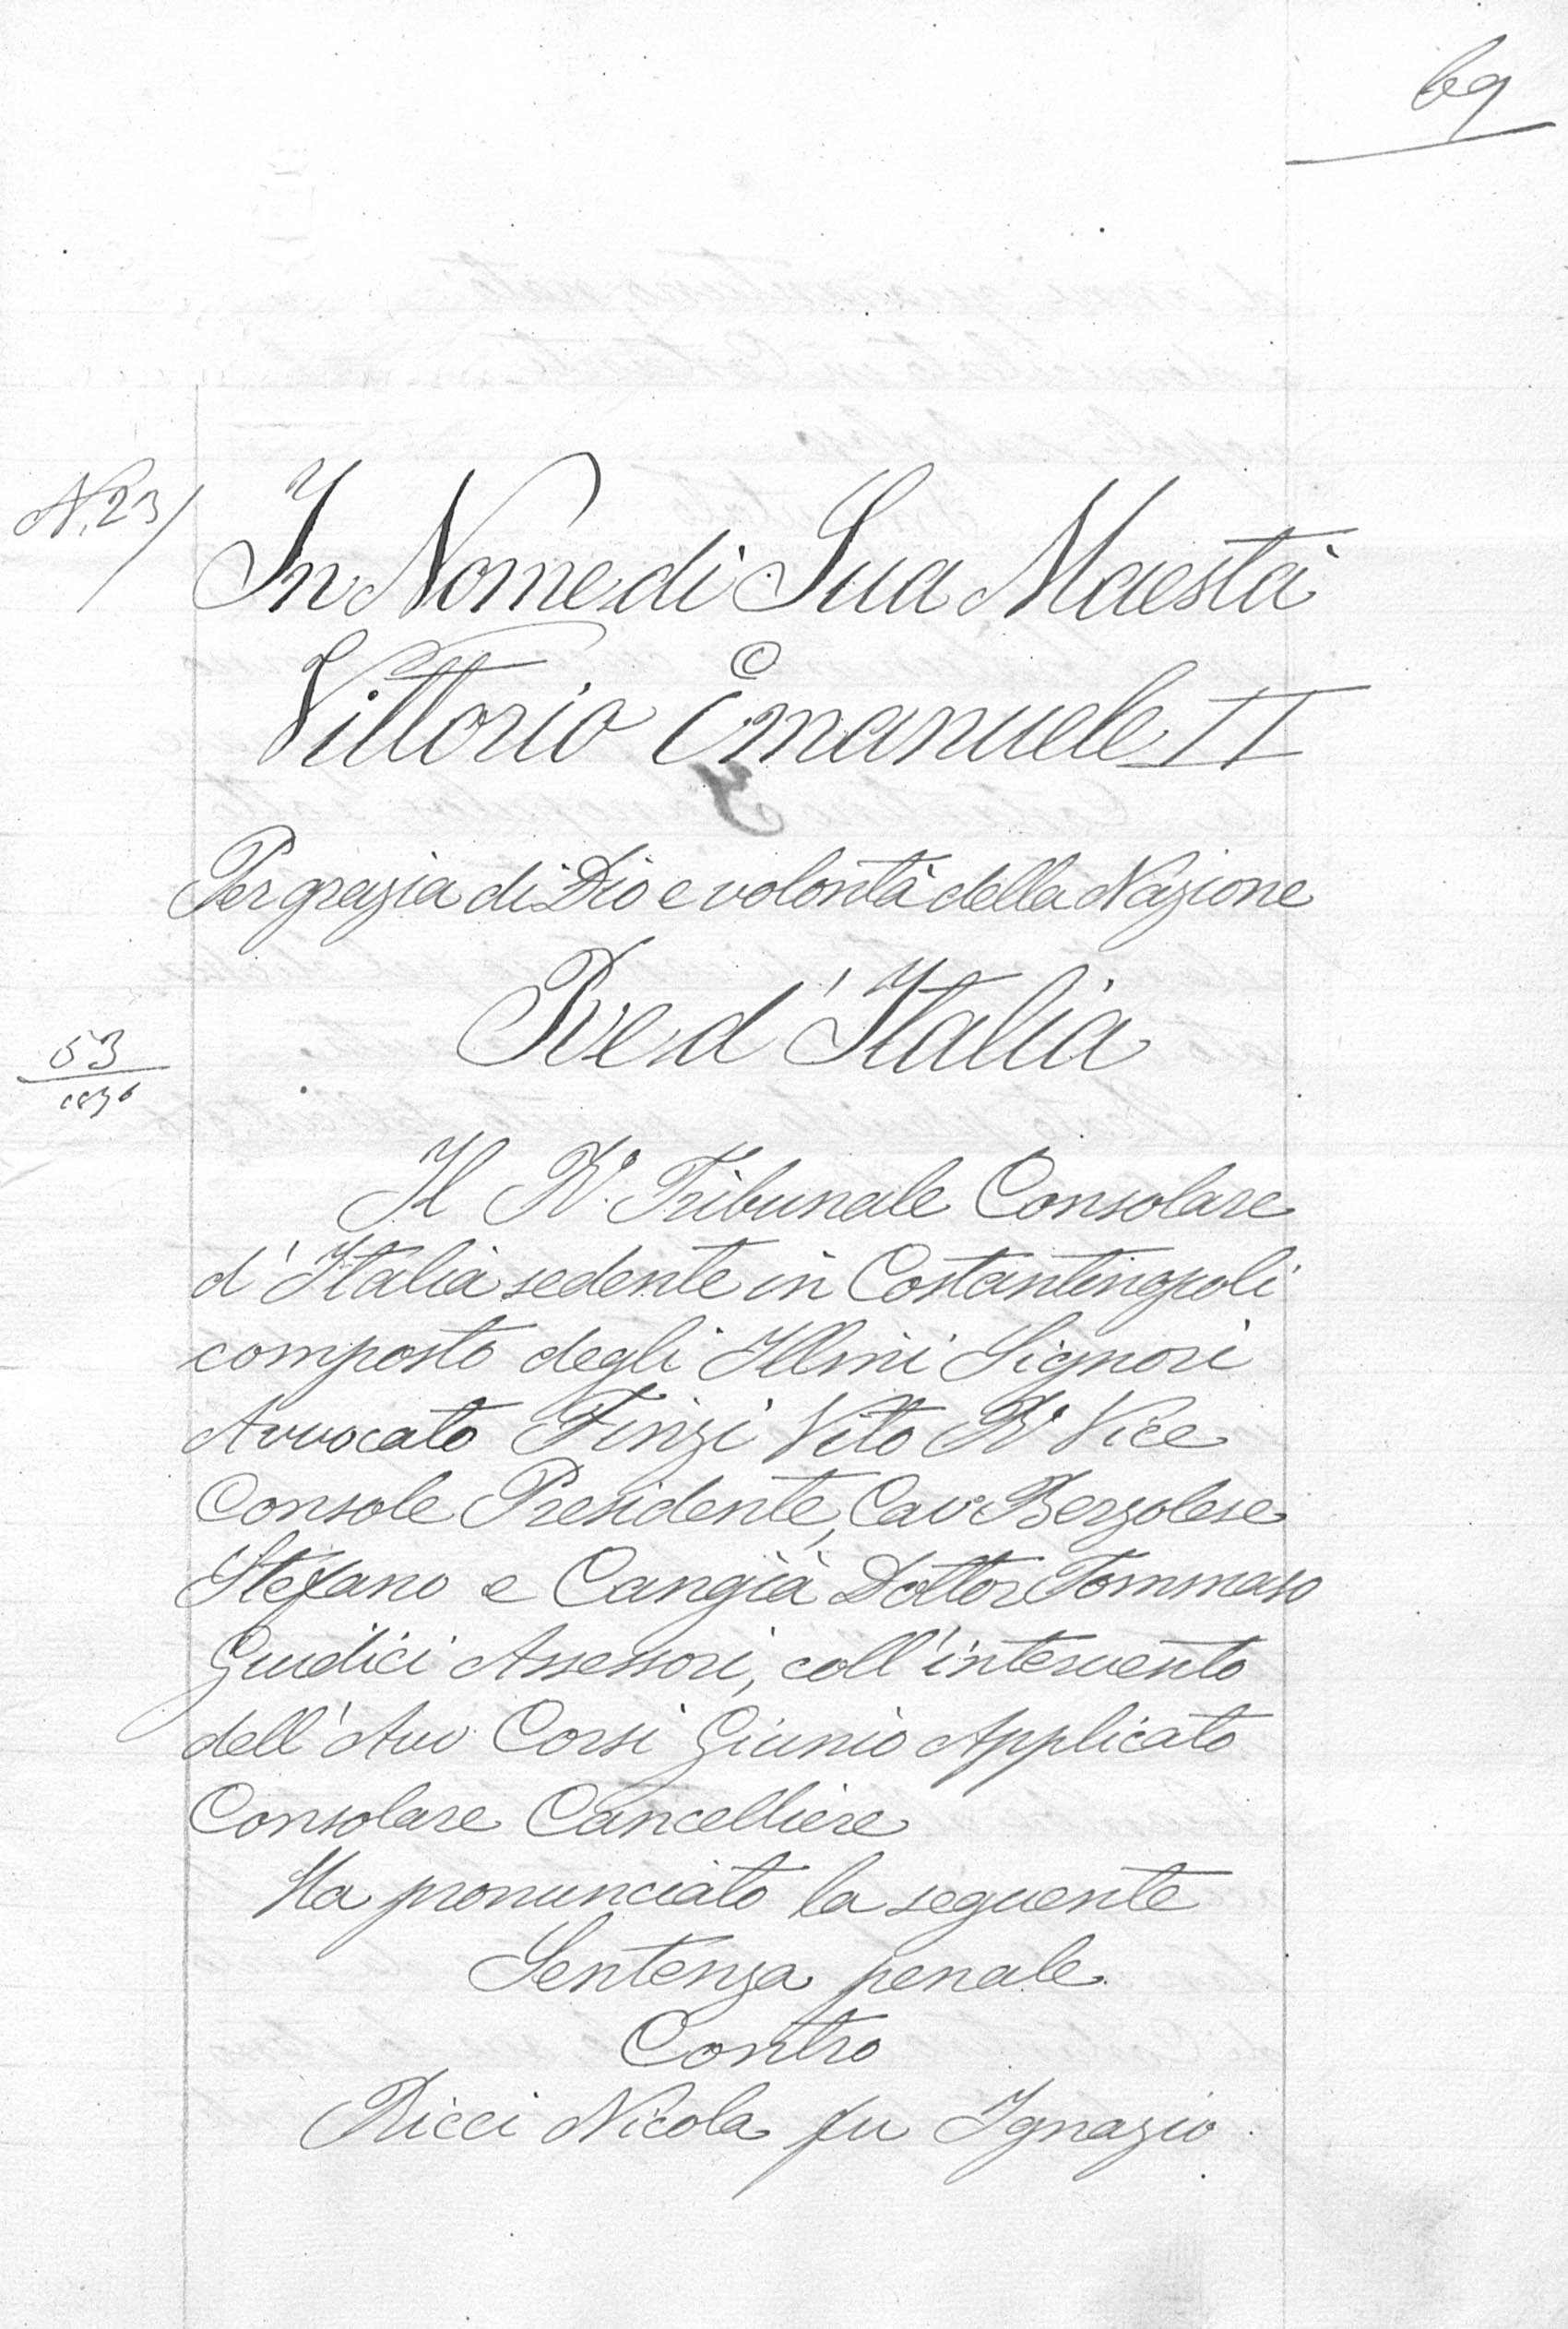 69
N. 23
In Nome di Sua Maestà
Vittorio Emanuele II
Per grazia di Dio e volontà della Nazione
Re d'Italia
53
1876
Il R. Tribunale Consolare
d'Italia sedente in Costantinopoli
composto degli Illmi Signori
Avvocato Finzi Vito R. Vice
Console Presidente, Cav. Berzolese
Stefano e Cangià Dottor Tommaso
Giudici Assessori, coll'intervento
dell'Avv. Corsi Giunio Applicato
Consolare Cancelliere
Ha pronunciato la seguente
Sentenza penale
Contro
Ricci Nicola fu Ignazio